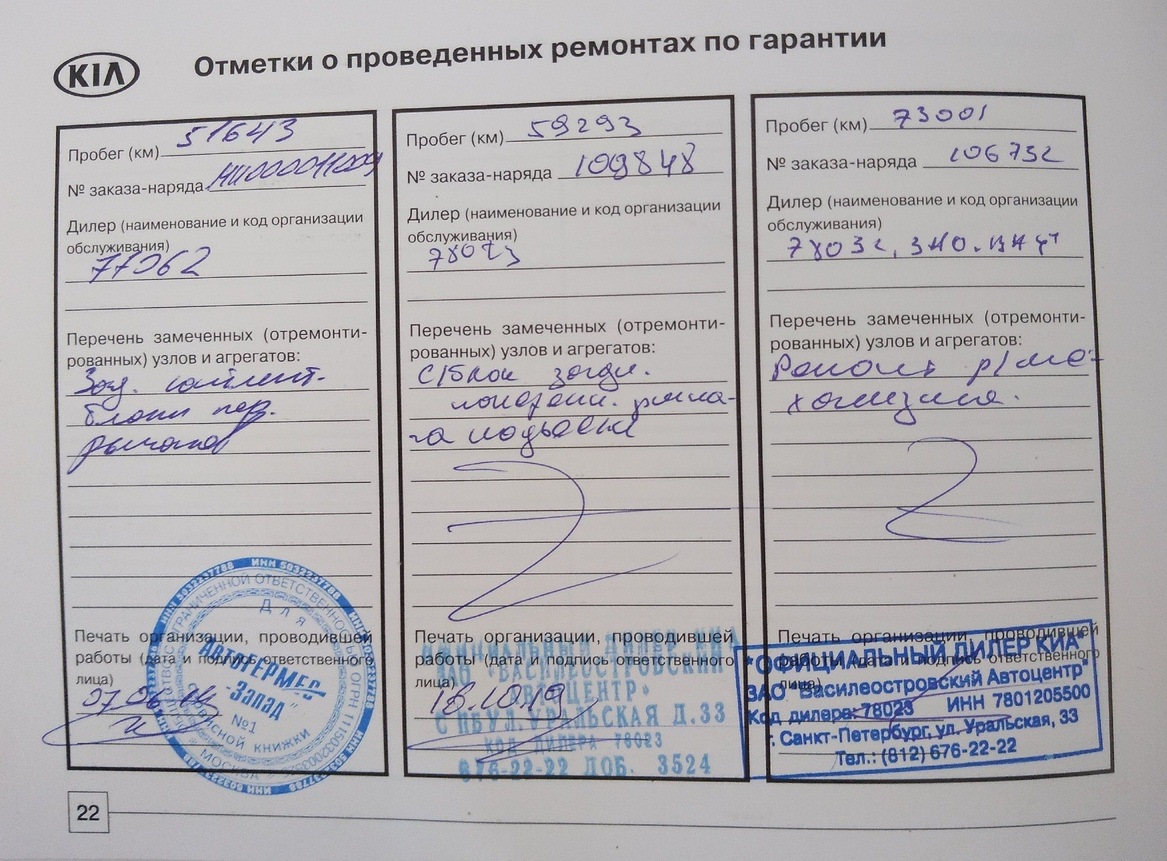 KIA
Отметки о проведенных ремонтах по гарантии
Пробег (км) 51643
№ заказа-наряда
Дилер (наименование и код организации
обслуживания)
77062
Перечень замеченных (отремонти-
рованных) узлов и агрегатов:
Зад.
блоки пер.
рычагов
Печать организации, проводившей
работы (дата и подпись ответственного
лица)
ИНН 5032237788
Для
АВТОГЕРМЕС
-Запад
№1
сервисной книжки
МОСКВА
Пробег (км) 59293
№ заказа-наряда 109848
Дилер (наименование и код организации
обслуживания)
78023
Перечень замеченных (отремонти-
рованных) узлов и агрегатов:
С/блок задн.
рыча-
га подвески
Печать организации, проводившей
работы (дата и подпись ответственного
лица)
18.10.19
ОФИЦИАЛЬНЫЙ ДИЛЕР КИА
ЗАО "ВАСИЛЕОСТРОВСКИЙ
АВТОЦЕНТР"
СПБ УЛ.УРАЛЬСКАЯ Д.33
КОД ДИЛЕРА 78023
676-22-22 ДОБ. 3524
Пробег (км) 73001
№ заказа-наряда 106732
Дилер (наименование и код организации
обслуживания)
Перечень замеченных (отремонти-
рованных) узлов и агрегатов:
Ремонт р/ме-
ханизма.
Печать организации, проводившей
работы (дата и подпись ответственного
лица)
"ОФИЦИАЛЬНЫЙ ДИЛЕР КИА"
ЗАО "Василеостровский Автоцентр"
Код дилера: 78023 ИНН 7801205500
г. Санкт-Петербург, ул. Уральская, 33
Тел.: (812) 676-22-22
22